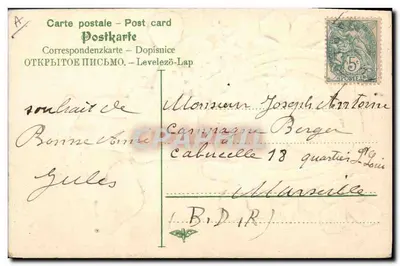 Carte postale - Post card
Postkarte
Correspondenzkarte - Dopisnice
ОТКРЫТОЕ ПИСЬМО. - Levelező-Lap
5
souhait de
Bonne Année
Jules
Monsieur Joseph Antoine
Berger
Cabucelle 18 quartier St Louis
Marseille
(B. D. R)